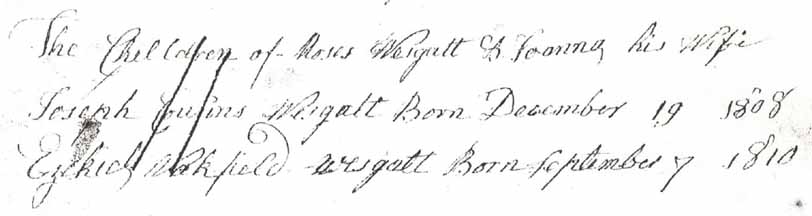 The Children of Moses Wesgatt & Joanna his Wife
Joseph Cousins Wesgatt Born December 19 1808
Ezekiel Wesgatt Born September 7 1810